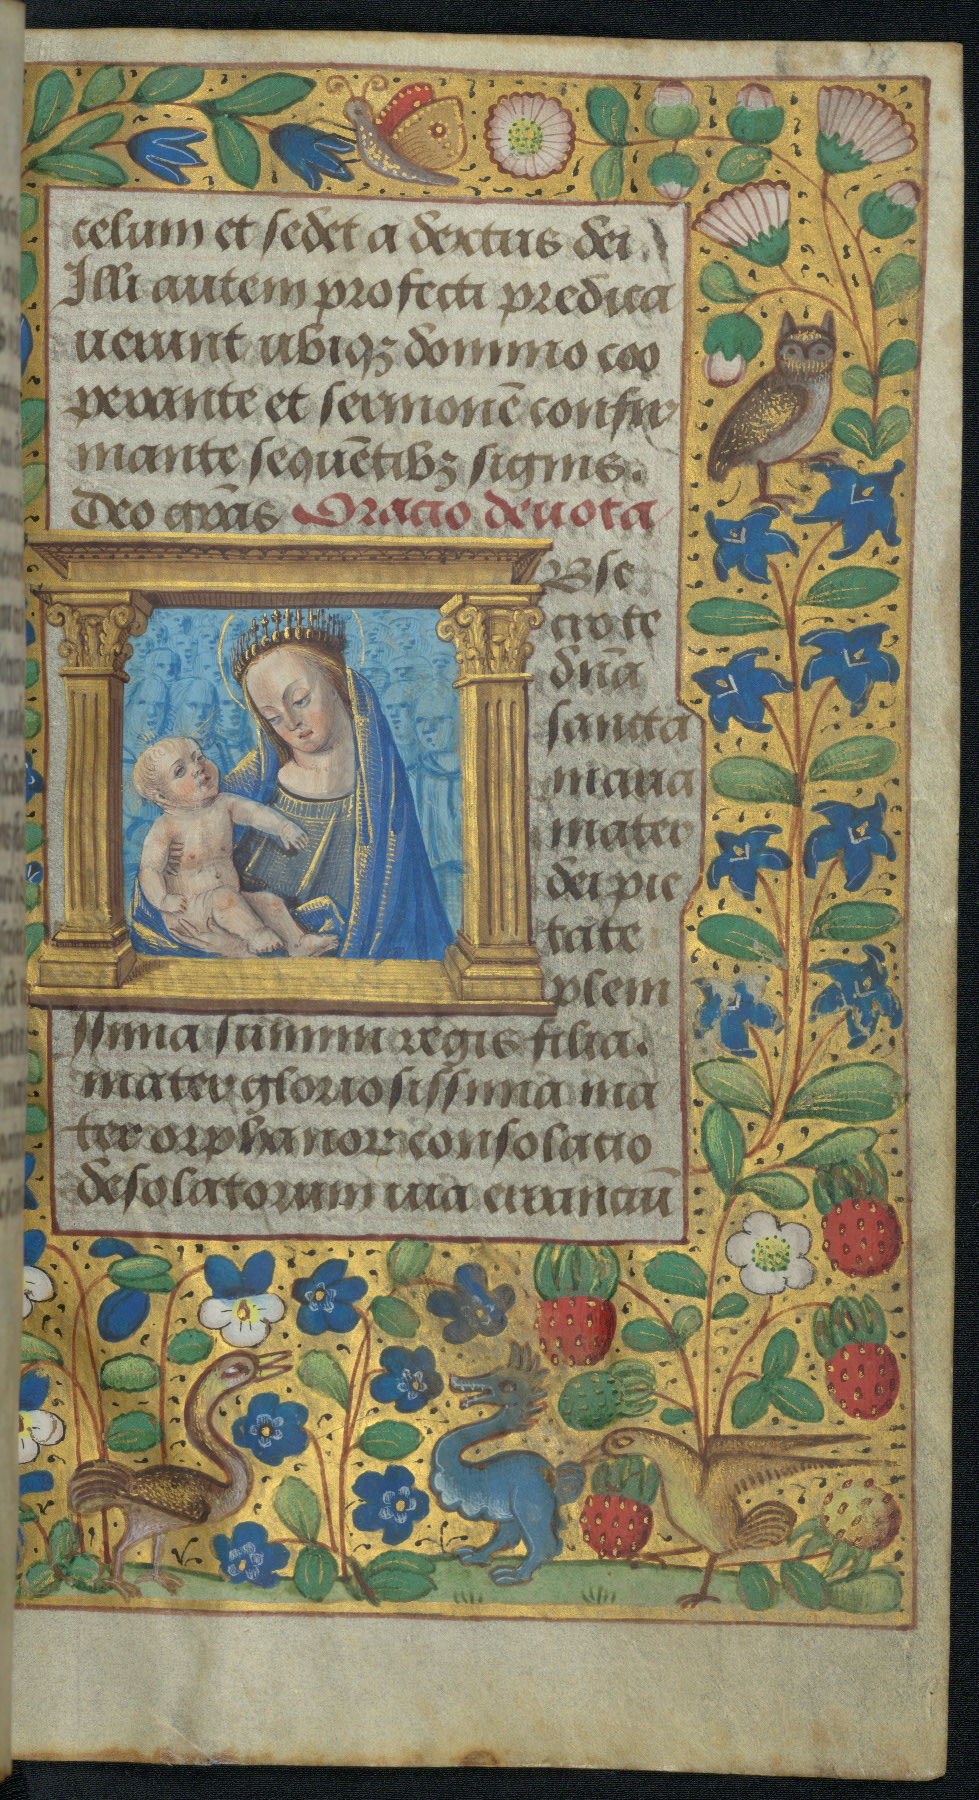 celum et sedet a dextris dei.
Illi autem profecti predica
uerunt ubiqꝫ domino coo
perante et sermonē confir
mante sequētibꝫ signis.
Deo gr̄as Oracio deuota
Obse
cro te
dn̄a
sancta
maria
mater
dei pie
tate
pleni
ssima summi regis filia.
mater gloriosissima ma
ter orphanoꝝ consolacio
desolatorum uia erranciū